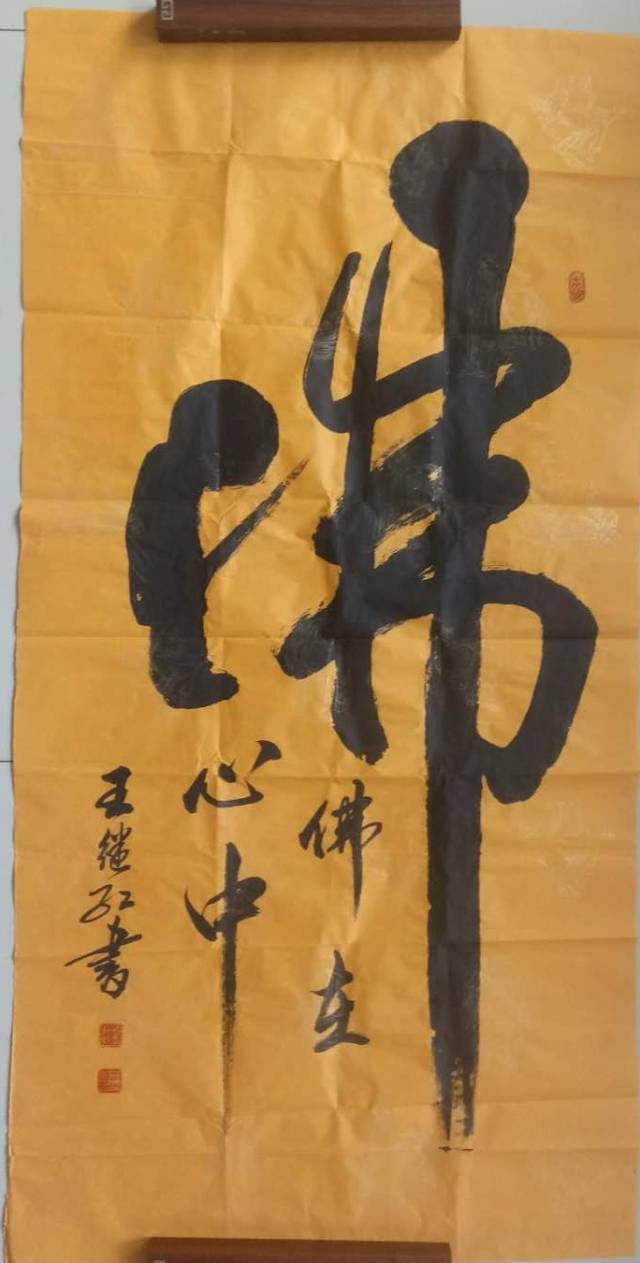 佛
佛在
心中
王继红书